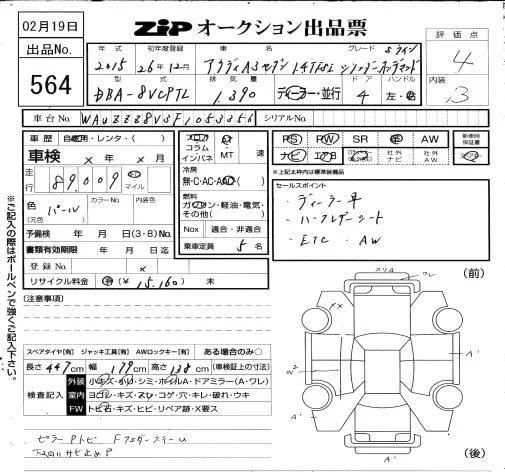 02月19日
ZIP オークション出品票
出品No.
564
評価点
4
内装
3
年式 初年度登録 車名 グレード Sライン
2015 26年12月 アウディA3セダン 1.4TFSI シリンダーオンデマンド
型式 排気量 ドア ハンドル
DBA-8VCPTL 1,390 ディーラー・並行 4 左・右
車台No. WAUZZZ8V3F1053356 シリアルNo.
車歴 自家用・レンタ・( )
車検 × 年 × 月
走行 89,009 マイル
色 (元色) パール カラーNo 内装色
予備検 年 月 日(3・8)No.
書類有効期限 年 月 日迄
登録No. ×
リサイクル料金 (¥ 15,160) 未
フロア コラム インパネ MT 速
冷房
無・C・AC・AAC
燃料
ガソリン・軽油・電気・その他( )
Nox 適合・非適合
乗車定員 5 名
PS PW SR 革 AW
ナビ エアB 社外ナビ 社外AW
新車時保証書
※上記太枠内は標準装備品
セールスポイント
・ディーラー車
・ハーフレザーシート
・ETC ・AW
※ご記入の際はボールペンで強くご記入下さい。
(注意事項)
スペアタイヤ[有] ジャッキ工具[有] AWロックキー[有] ある場合のみ○
長さ 447cm 幅 179cm 高さ 138cm (車検証上の寸法)
検査記入
外装 小キズ・小凹・シミ・ホイルA・ドアミラー(A・ワレ)
室内 ヨゴレ・キズ・スレ・コゲ・穴・キレ・破れ・ウキ
FW トビ石・キズ・ヒビ・リペア跡・X要ス
(前)
スリA
ワレ
××
A'
W2
A'
A'
(後)